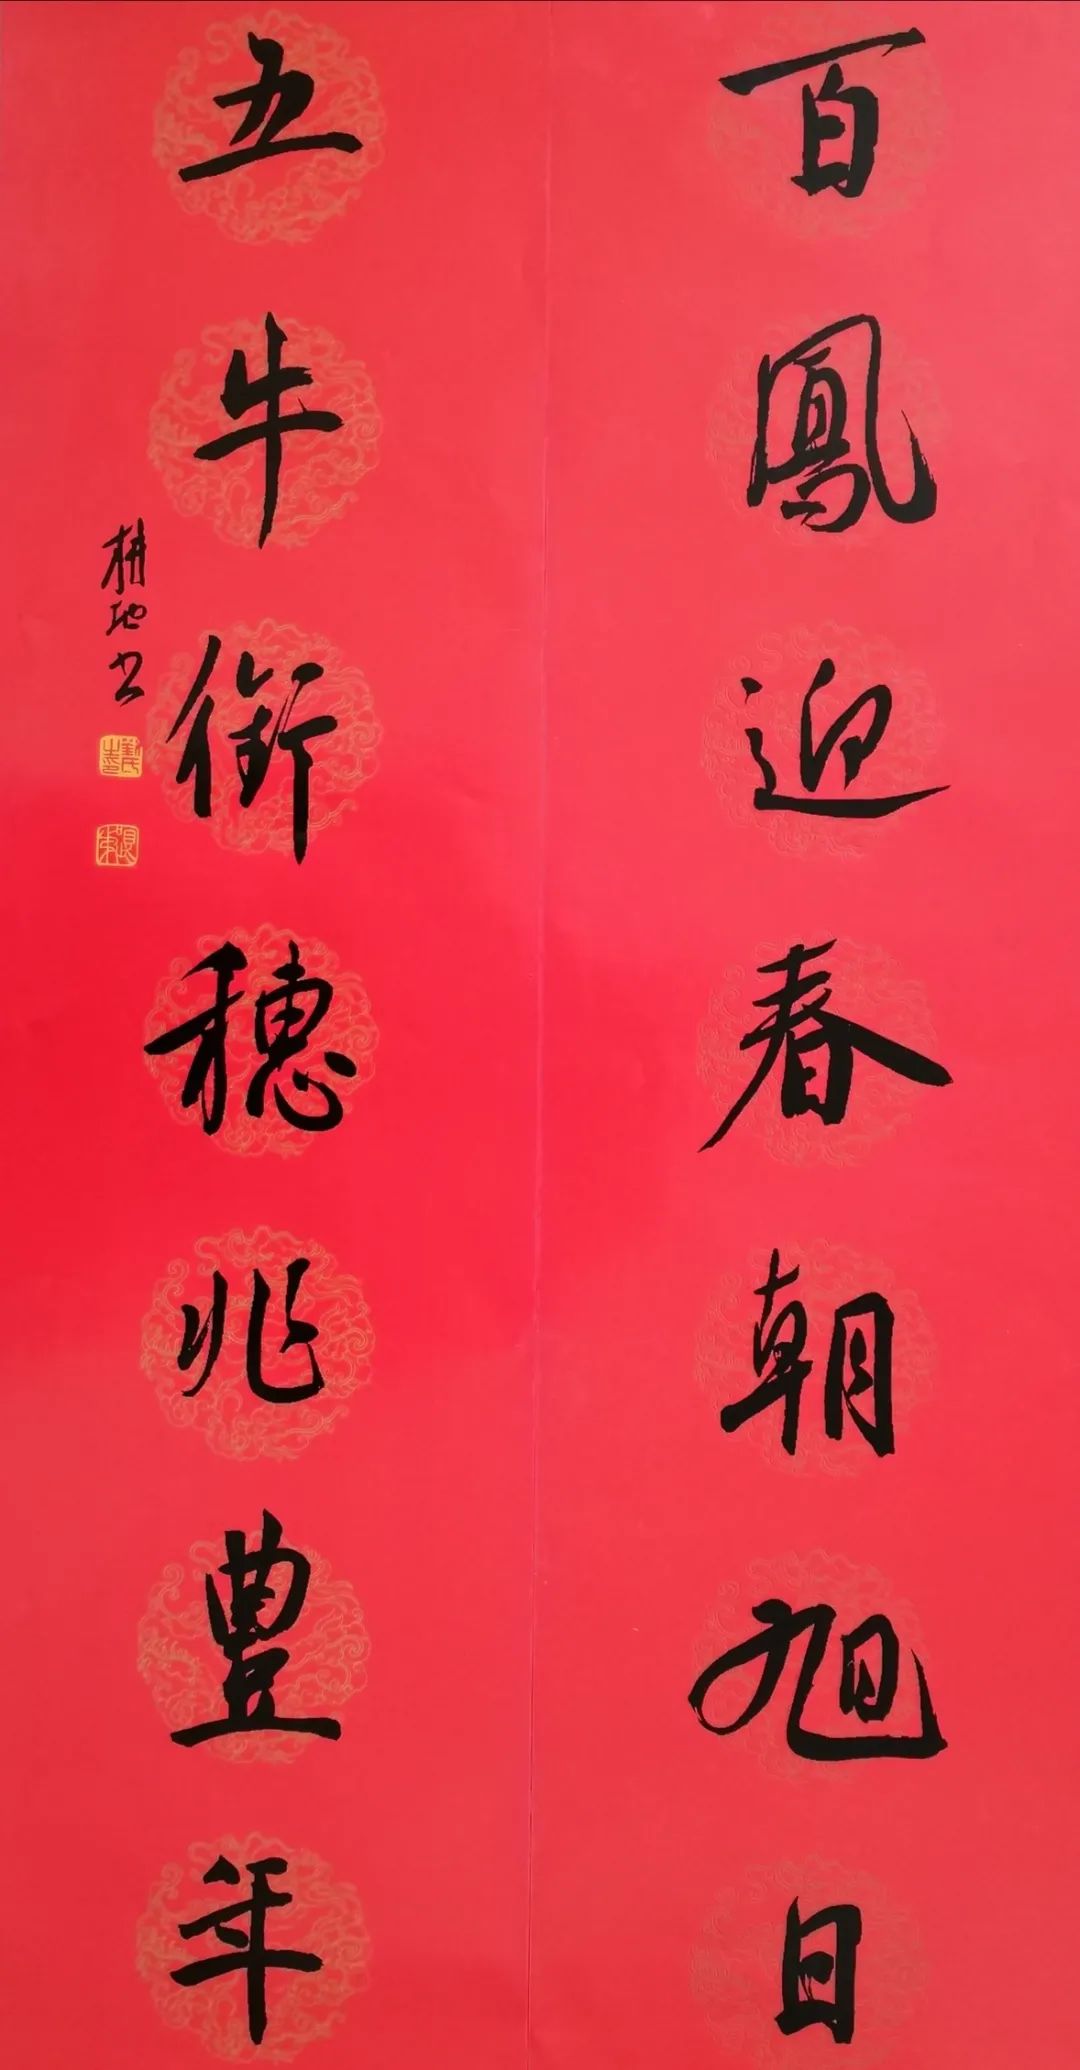 百鳳迎春朝旭日
五牛銜穗兆豐年
耕地書